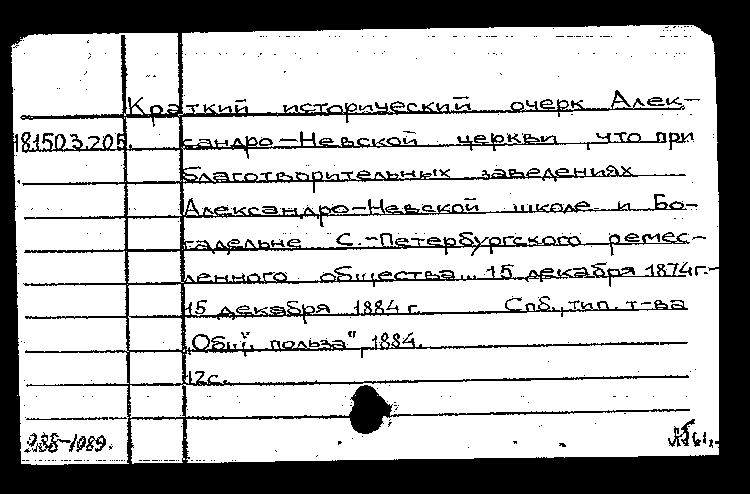 Краткий исторический очерк Алек-
181503.205. сандро-Невской церкви, что при
благотворительных заведениях
Александро-Невской школе и Бо-
гадельне С.-Петербургского ремес-
ленного общества... 15 декабря 1874г.-
15 декабря 1884 г. Спб., тип. т-ва
"Общ. польза", 1884.
12с.
288-1989.